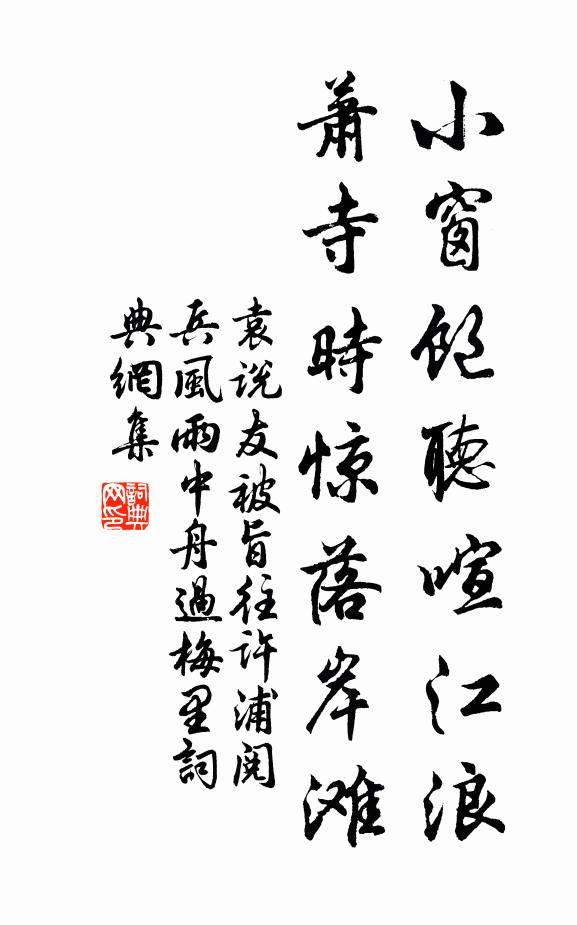 小窗飽聽喧江浪
蕭寺時惊落岸滩
袁说友被旨往許浦閱
兵風雨中舟過梅里詞
典網集
詞典网印